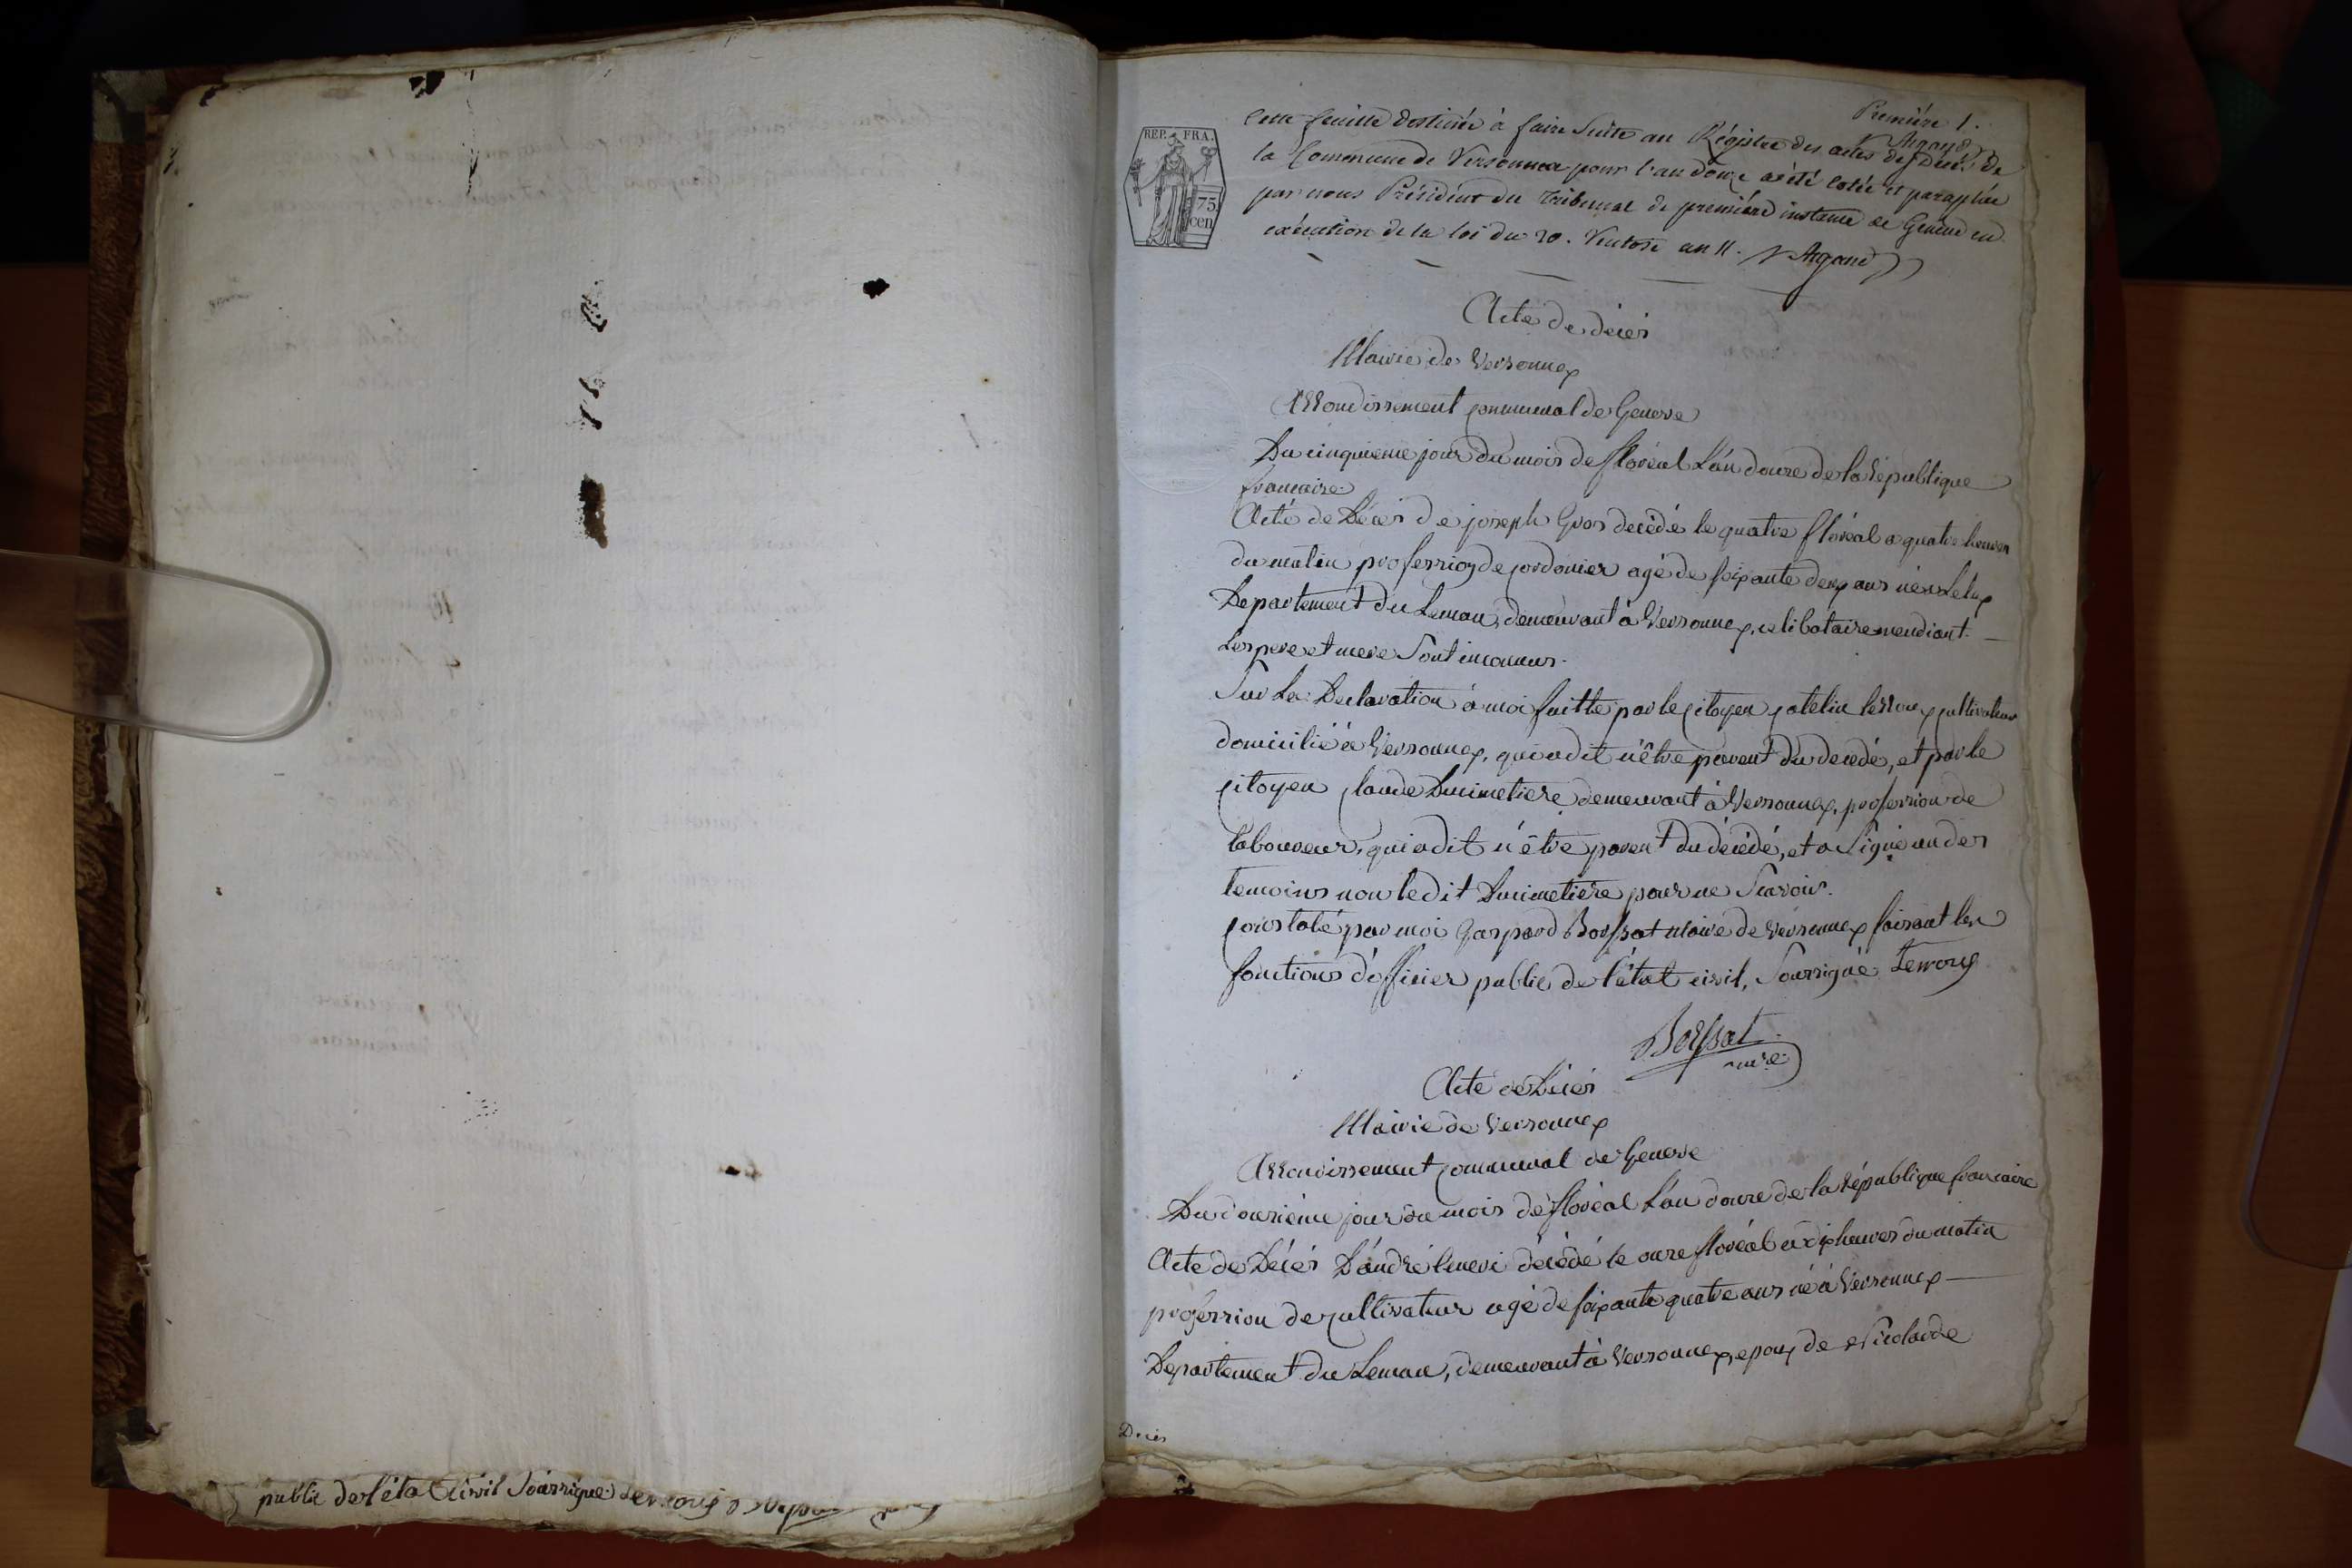 public de l'état civil Soussigné Lerroug
Premiére 1.
Argand
REP. FRA.
75
cen
Cette feuille destinée à faire Suite au Régistre des actes de Décès de
la Commune de Versonnex pour l'an douze a été cotée et paraphée
par nous Président du Tribunal de premiére instance de Genève en
exécution de la loi du 20. Ventose an 11. Argand
Acte de décés
Mairie de Versonnex
Arrondissement communal de Geneve
Du cinquieme jour du mois de floréal L'an douze de la République
francaise
Acte de Décés de joseph Gros décédé le quatre floréal a quatre heures
du matin profession de cordonier agé de soixante deux ans né a
Departement du Leman, demeurant à Versonnex, celibataire mendiant.
Les pere et mere Sont inconnus.
Sur La Declaration à moi faitte par le citoyen catelin Lerroux cultivateur
domicilié à Versonnex, qui a dit n'être parent du decedé, et par le
citoyen claude Ducimetiere demeurant à Versonnex, profession de
laboureur, qui a dit n'être parent du décédé, et a Signé un des
temoins non le dit Ducimetiere pour ne Scavoir.
constaté par moi Gaspard Boissat maire de Versonnex faisant les
fonctions d'officier public de l'état civil, Soussigné Lerroug
Boissat
maire
Acte de Décés
Mairie de Versonnex
Arrondissement communal de Geneve
Du douzieme jour du mois de floréal L'an douze de la République francaise
Acte de Décés D'andré décédé le onze floréal a dix heures du matin
profession de cultivateur agé de soixante quatre ans né à Versonnex
Departement du Leman, demeurant à Versonnex, epoux de Nicolarde
Décès